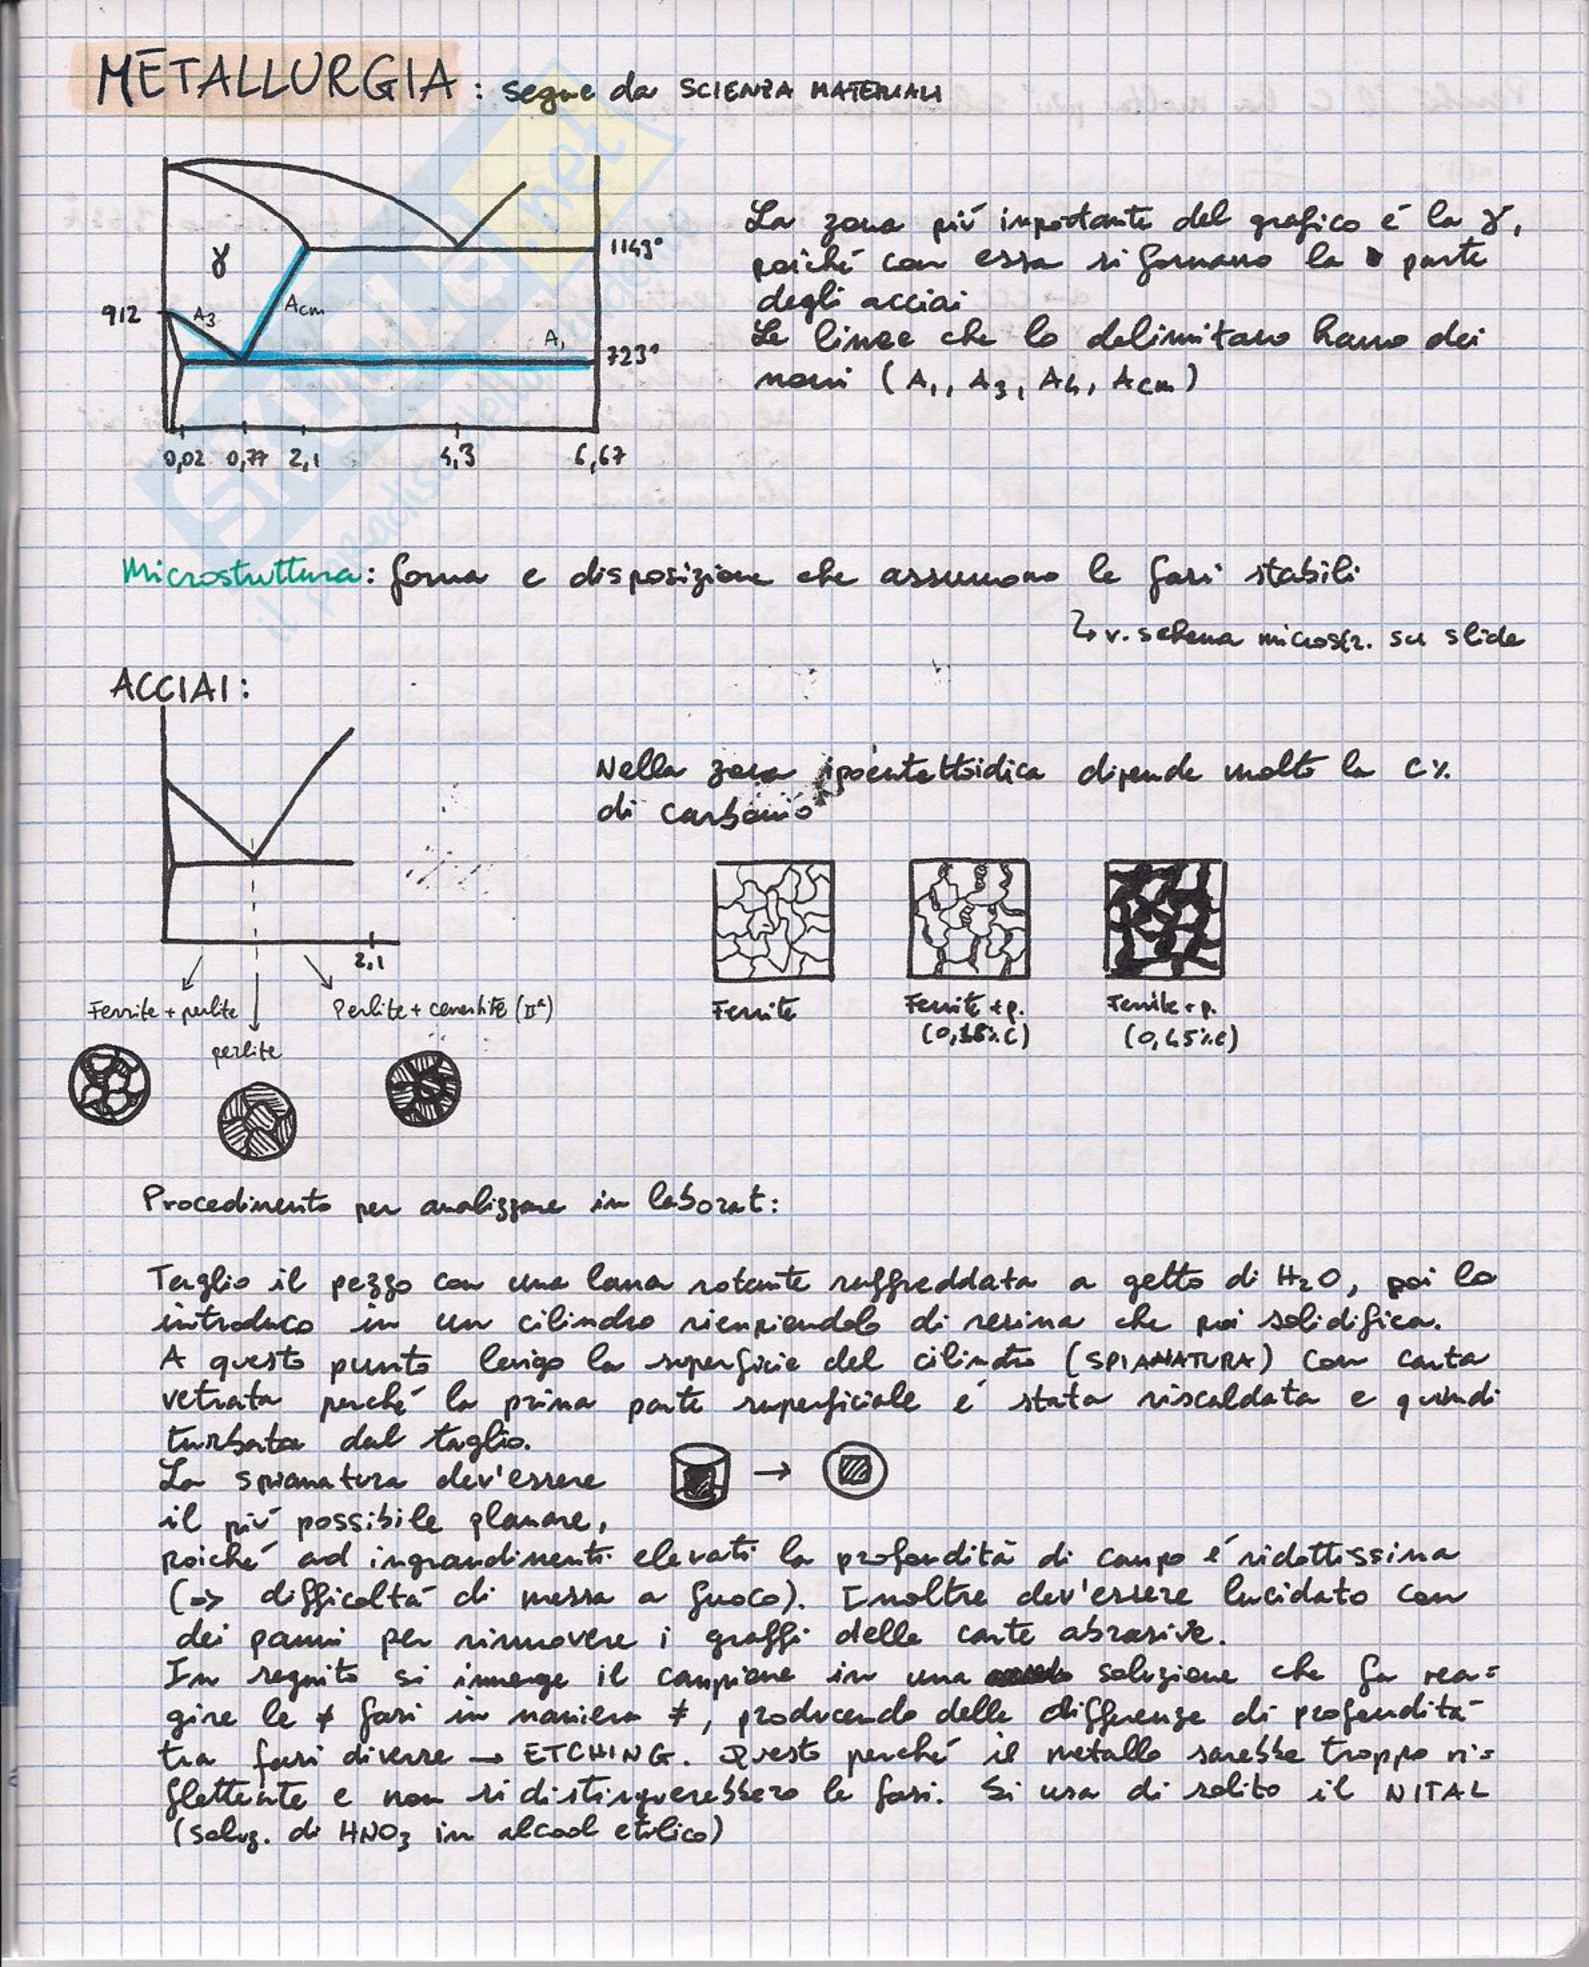 METALLURGIA : segue da SCIENZA MATERIALI
γ
A3
Acm
A1
912
1143°
723°
0,02 0,77 2,1 4,3 6,67
La zona più importante del grafico é la γ,
poiché con essa si formano la parte
degli acciai
Le linee che lo delimitano hanno dei
nomi (A1, A3, A4, Acm)
Microstruttura: forma e disposizione che assumono le fasi stabili
↳ v. schema microstr. su slide
ACCIAI:
2,1
Ferrite + perlite
perlite
Perlite + cementite (IIª)
Nella zona ipoeutettoidica dipende molto la C%
di carbonio
Ferrite
Ferrite + p.
(0,18%C)
Ferrite + p.
(0,45%C)
Procedimento per analizzare in laborat:
Taglio il pezzo con una lama rotante raffreddata a getto di H2O, poi lo
introduco in un cilindro riempiendolo di resina che poi solidifica.
A questo punto levigo la superficie del cilindro (SPIANATURA) con carta
vetrata perché la prima parte superficiale é stata riscaldata e quindi
turbata dal taglio.
La spianatura dev'essere
il più possibile planare,
poiché ad ingrandimenti elevati la profondità di campo é ridottissima
(=> difficoltà di messa a fuoco). Inoltre dev'essere lucidato con
dei panni per rimuovere i graffi delle carte abrasive.
In seguito si immerge il campione in una soluzione che fa rea=
gire le ≠ fasi in maniera ≠, producendo delle differenze di profondità
tra fasi diverse → ETCHING. Questo perché il metallo sarebbe troppo ri=
flettente e non si distinguerebbero le fasi. Si usa di solito il NITAL
(soluz. di HNO3 in alcool etilico)